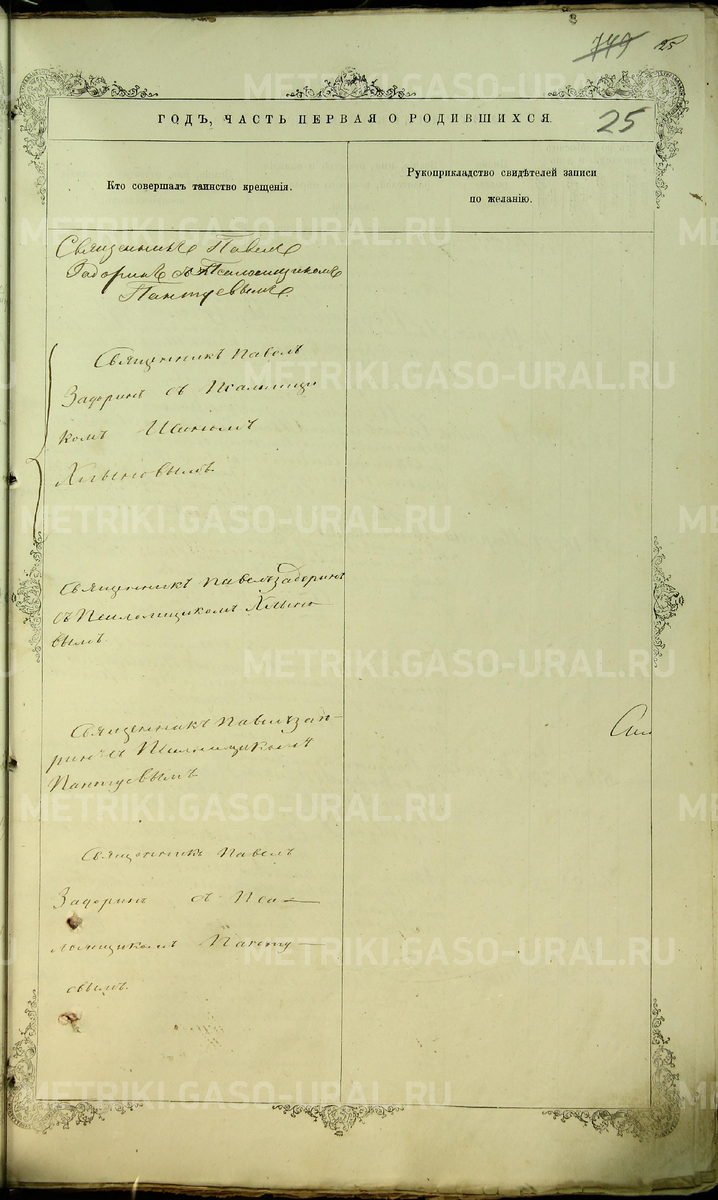 25
25
ГОДЪ, ЧАСТЬ ПЕРВАЯ О РОДИВШИХСЯ.
Кто совершалъ таинство крещенія.
Рукоприкладство свидѣтелей записи
по желанію.
Священникъ Павелъ
Задоринъ съ Псаломщикомъ
Пантуевымъ.
Священникъ Павелъ
Задоринъ съ Псаломщи
комъ
Хлыновымъ.
Священникъ Павелъ Задоринъ
съ Псаломщикомъ Хлыно
вымъ.
Священникъ Павелъ
ринъ съ Псаломщикомъ
Пантуевымъ
Священникъ Павелъ
Задоринъ съ Пса
ломщикомъ Панту
евымъ.
METRIKI.GASO-URAL.RU